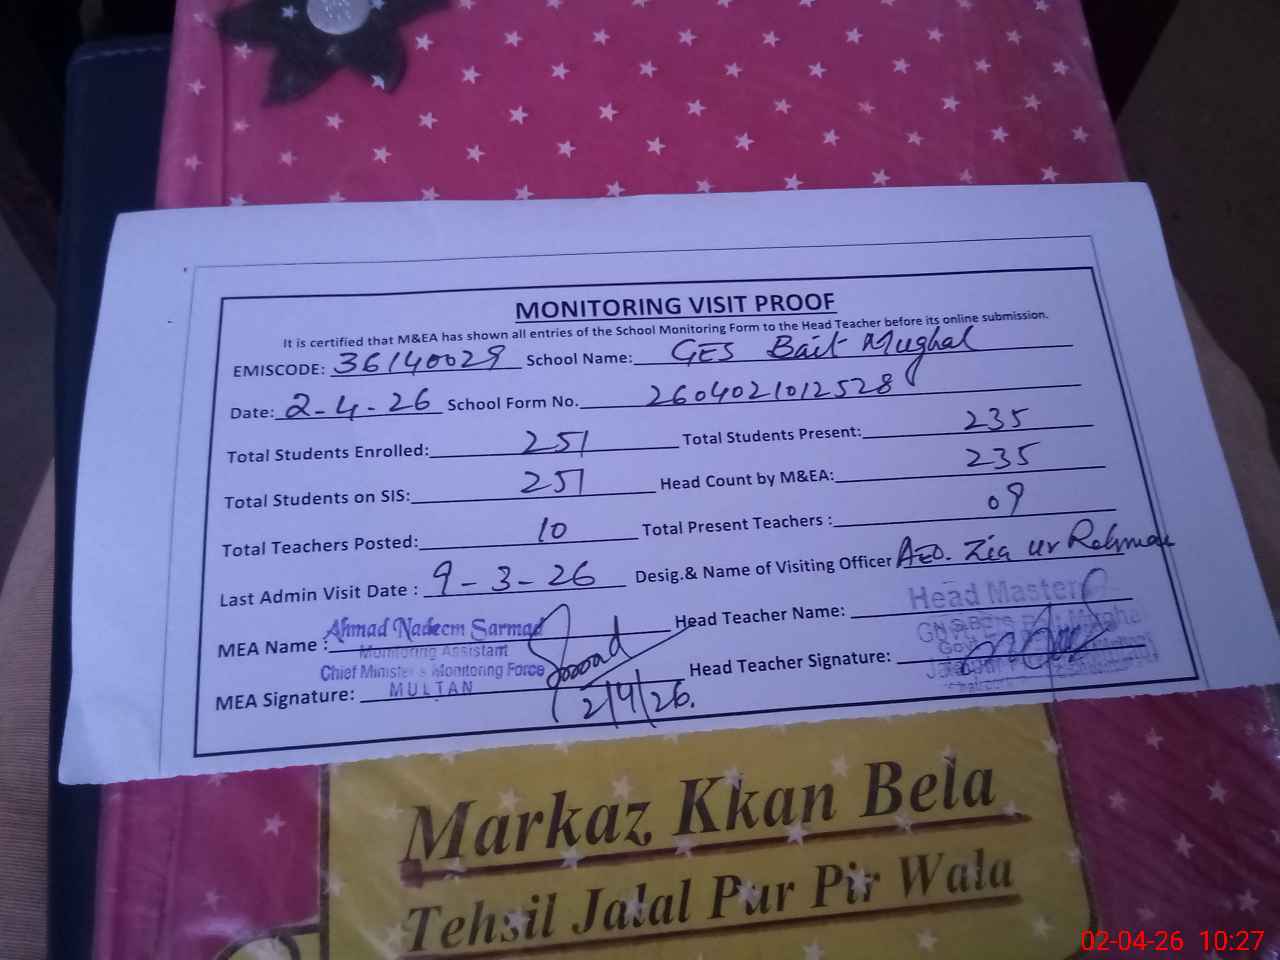 MONITORING VISIT PROOF
It is certified that M&EA has shown all entries of the School Monitoring Form to the Head Teacher before its online submission.
EMISCODE: 36140029 School Name: GES Bait Mughal
Date: 2-4-26 School Form No. 2604021012528
Total Students Enrolled: 251 Total Students Present: 235
Total Students on SIS: 251 Head Count by M&EA: 235
Total Teachers Posted: 10 Total Present Teachers : 09
Last Admin Visit Date : 9-3-26 Desig.& Name of Visiting Officer AEO. Zia ur Rehman
MEA Name : Ahmad Nadeem Sarmad Head Teacher Name: Head Master
Monitoring Assistant
Chief Minister's Monitoring Force
MEA Signature: MULTAN Head Teacher Signature:
2/4/26.
Markaz Kkan Bela
Tehsil Jalal Pur Pir Wala
02-04-26 10:27